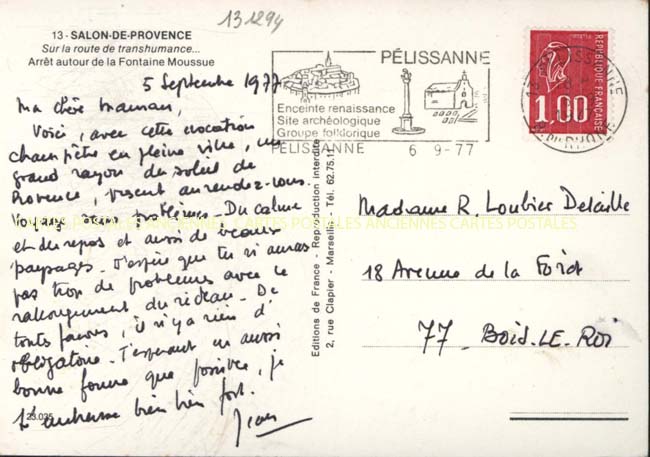 131294
13 - SALON-DE-PROVENCE
Sur la route de transhumance...
Arrêt autour de la Fontaine Moussue
5 Septembre 1977
Ma chère Maman,
Voici, avec cette évocation
champêtre en pleine ville, un
grand rayon du soleil de
Provence, présent au rendez-vous.
Voyage sans problèmes. Du calme
et du repos et aussi de beaux
paysages. J'espère que tu n'auras
pas trop de problèmes avec le
rallongement du rideau. De
toutes façons, il n'y a rien d'
obligatoire. T'espérant en aussi
bonne forme que possible, je
t'embrasse bien bien fort.
Jean
23.035
Editions de France - Reproduction interdite
2, rue Clapier - Marseille - Tél. 62.75.1
PÉLISSANNE
Enceinte renaissance
Site archéologique
Groupe folklorique
PÉLISSANNE 6 9-77
REPUBLIQUE FRANÇAISE
1,00
13 PÉLISSANNE
B. DU RHONE
Madame R Loubier Delaille
18 Avenue de la Forêt
77 BOIS-LE-ROI
CARTES POSTALES ANCIENNES CARTES POSTALES